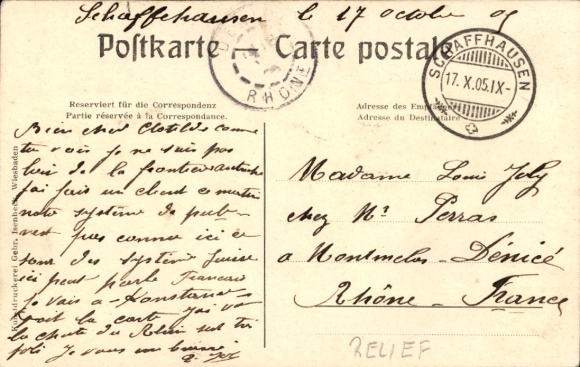 Schaffhausen le 17 octobre 05
Postkarte — Carte postale
DE
RHÔNE
SCHAFFHAUSEN
17.X.05.IX-
Reserviert für die Correspondenz
Partie réservée à la Correspondance.
Adresse des Empfängers
Adresse du Destinataire
Kunstdruckerei Gebr. Isenbeck, Wiesbaden
Bien chère Clotilde comme
tu vois je ne suis pas
loin de la frontière autriche
j'ai fais un client ce matin
notre système de
n'est pas connu ici ce
sont des système suisse
ici peut parle Francais
Je vais a Konstanz
voit la carte j'ai vu
la chute du Rhin est très
joli Je vous
Madame Louis Joly
chez Mr Perras
a Montmelas-Dénicé
Rhône - France
RELIEF